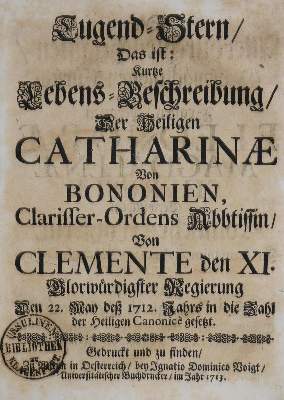 Tugend-Stern/
Das ist:
Kurtze
Lebens-Beschreibung/
Der Heiligen
CATHARINÆ
Von
BONONIEN,
Clarisser-Ordens Abbtissin/
Von
CLEMENTE den XI.
Glorwürdigster Regierung
Den 22. May deß 1712. Jahrs in die Zahl
der Heiligen Canonicè gesetzt.
Gedruckt und zu finden/
in Oesterreich/ bey Ignatio Dominico Voigt/
Universitätischer Buchdrucker/ im Jahr 1713.
BIBLIOTHEK